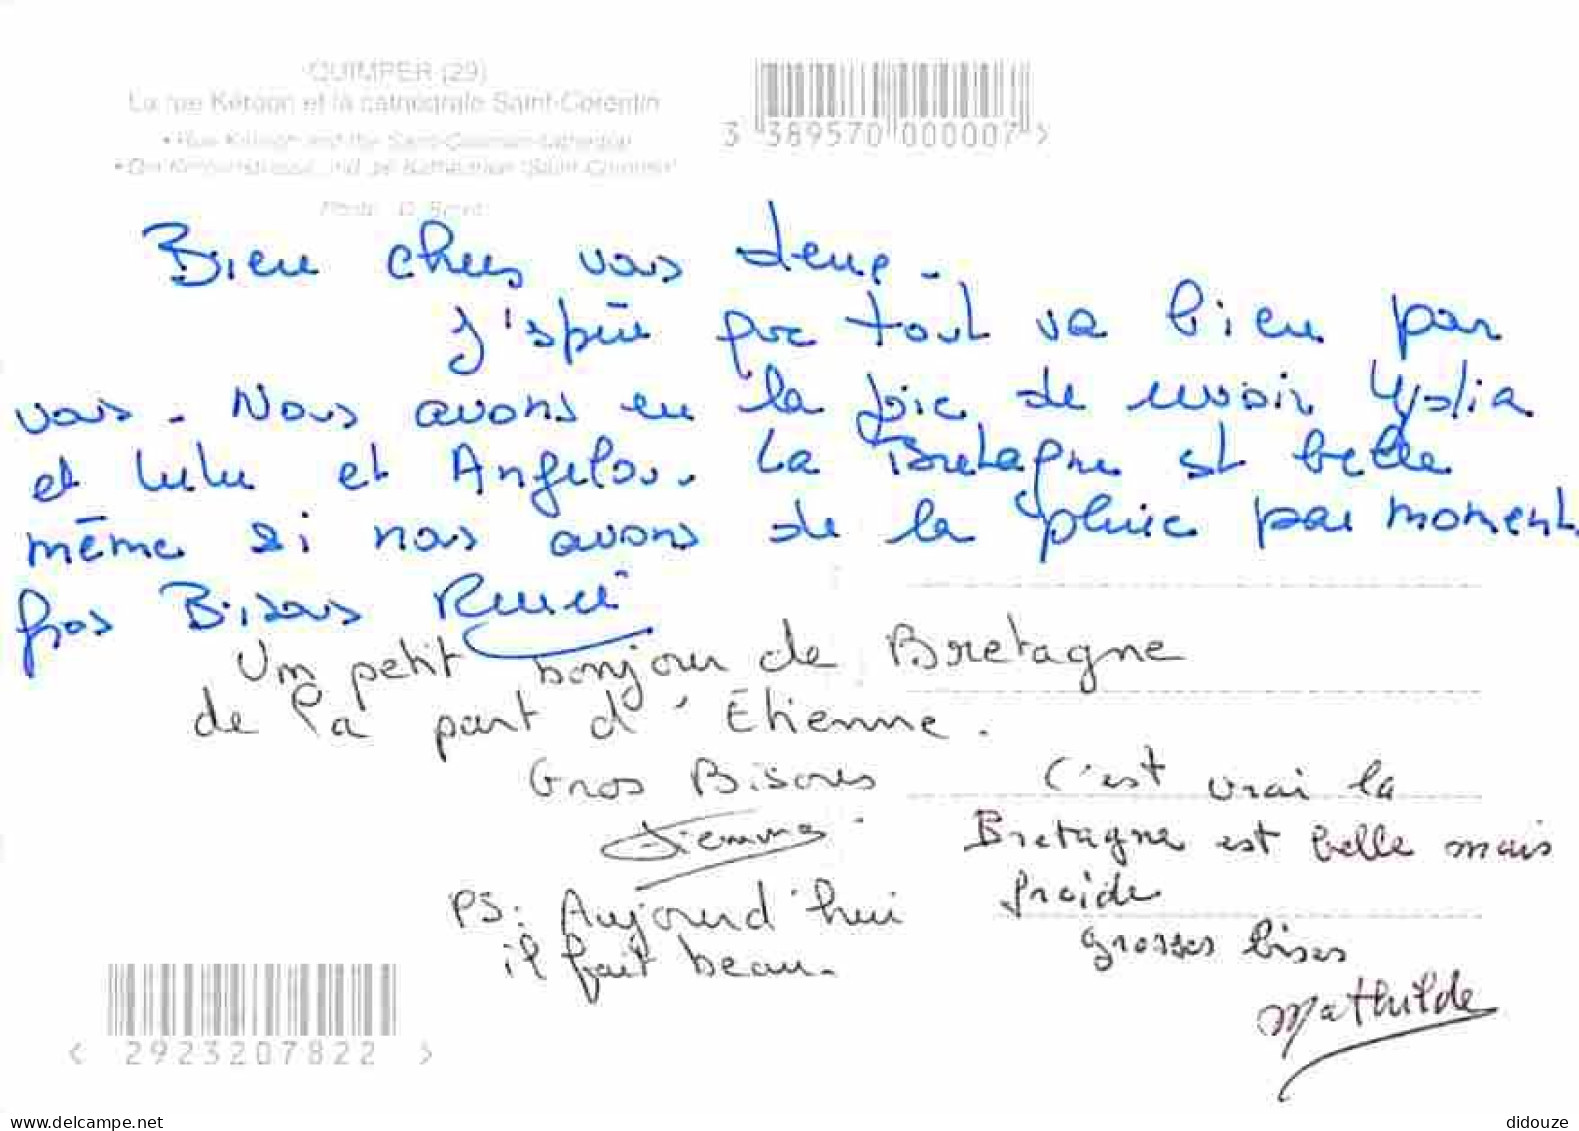 QUIMPER (29)
La rue Kéréon et la cathédrale Saint-Corentin
• Rue Kéréon and the Saint-Corentin cathedral
3 389570 000007 >
Bien chers vous deux.
J'espère que tout va bien par
vous. Nous avons eu la joie de revoir
et Lulu et Angelou. La Bretagne est belle
même si nous avons de la pluie par moment
gros Bisous Renée
Un petit bonjour de Bretagne
de la part d'Étienne.
Gros Bisous
PS: Aujourd'hui
il fait beau.
C'est vrai la
Bretagne est belle mais
froide
grosses bises
Mathilde
< 2923207822 >
www.delcampe.net
didouze